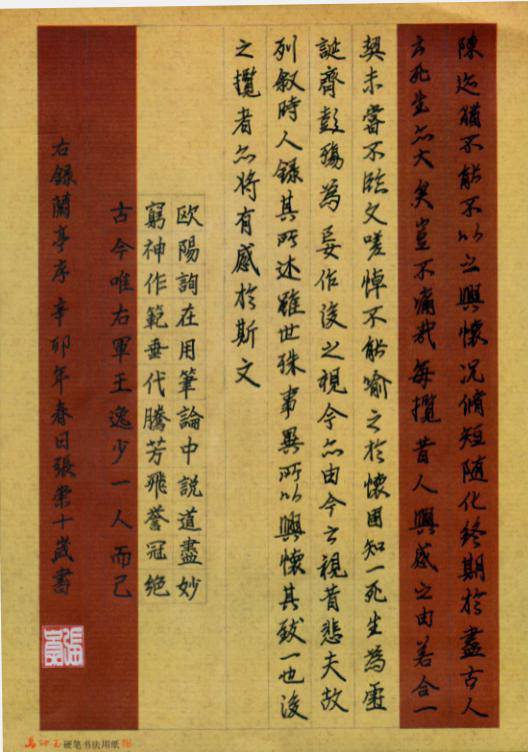 陳迹猶不能不以之興懷況脩短随化終期於盡古人
云死生亦大矣豈不痛哉每攬昔人興感之由若合一
契未嘗不臨文嗟悼不能喻之於懷固知一死生為虛
誕齊彭殤為妄作後之視今亦由今之視昔悲夫故
列叙時人錄其所述雖世殊事異所以興懷其致一也後
之攬者亦将有感於斯文
欧陽詢在用筆論中説道盡妙
窮神作範垂代騰芳飛譽冠絶
古今唯右軍王逸少一人而已
右録蘭亭序辛卯年春日張榮十歲書
硬笔书法用纸